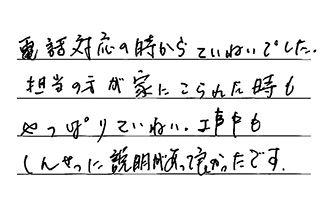 電話対応の時からていねいでした.
担当の方が家にこられた時も
やっぱりていねい.工事中も
しんせつに説明があって良かったです.